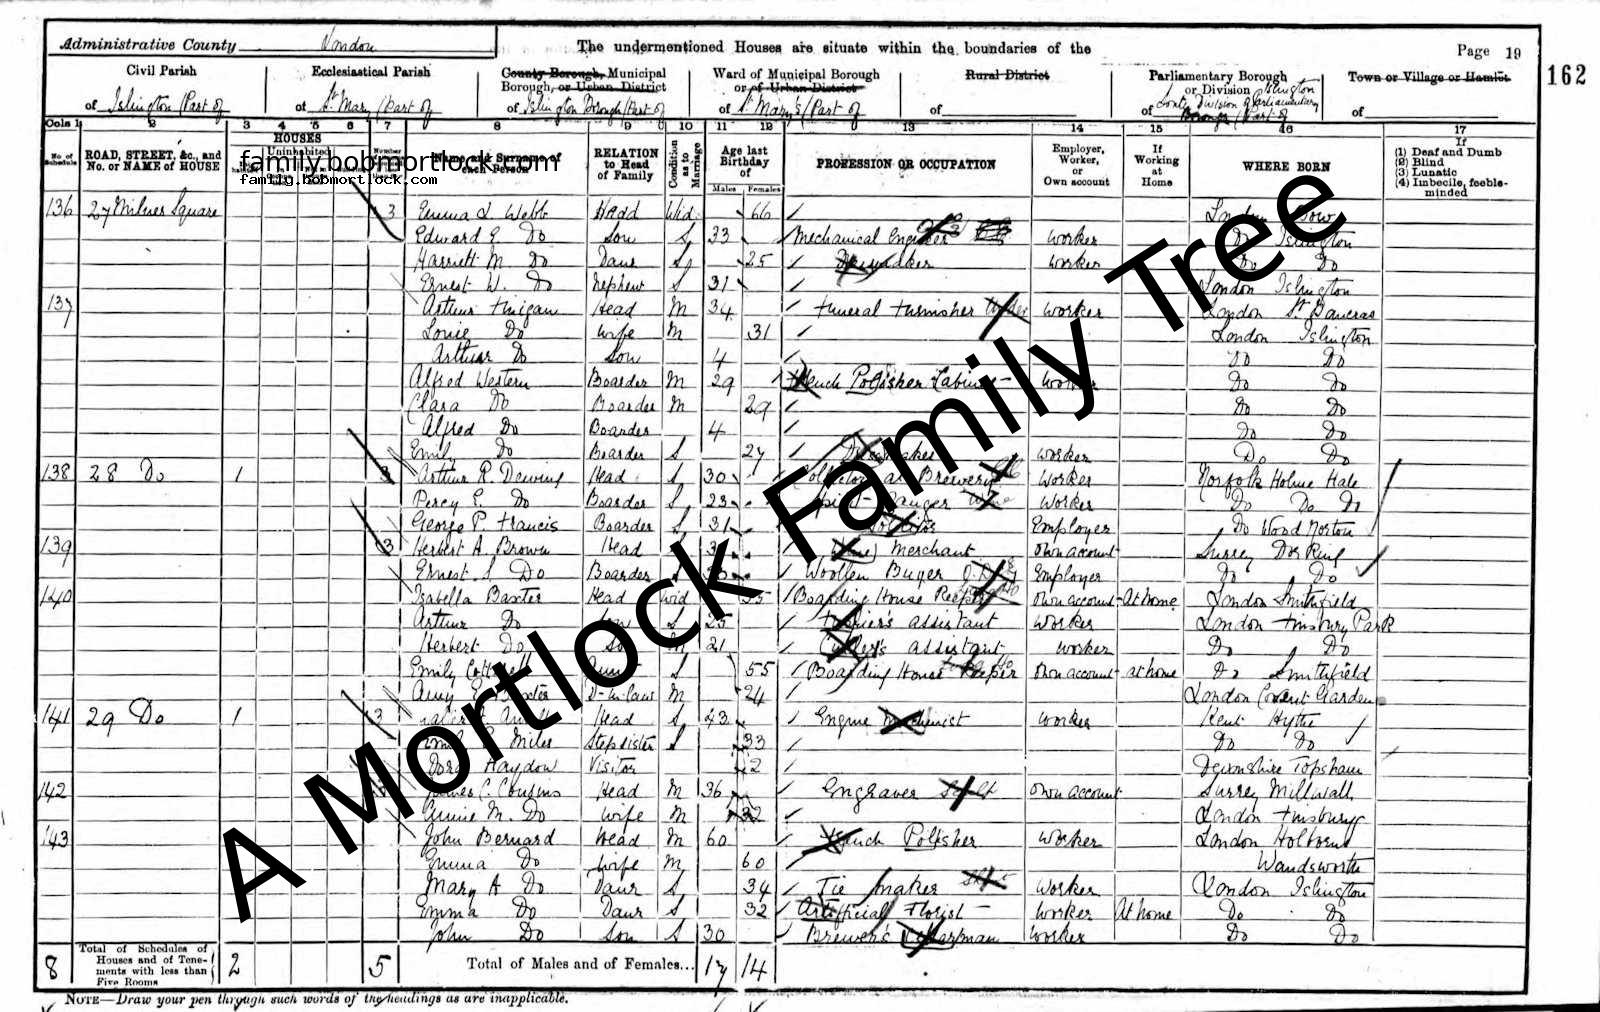 Administrative County London
The undermentioned Houses are situate within the boundaries of the
Page 19
162
Civil Parish
of Islington (Part of
Ecclesiastical Parish
of St Mary (Part of
County Borough, Municipal
Borough, or Urban District
of Islington Borough (Part of
Ward of Municipal Borough
or of Urban District
of St Mary's (Part of
Rural District
of
Parliamentary Borough
or Division Islington
of South Division of Parliamentary
Borough (Part of
Town or Village or Hamlet
of
Cols 1 2 3 4 5 6 7 8 9 10 11 12 13 14 15 16 17
No. of Schedule
ROAD, STREET, &c., and
No. or NAME of HOUSE
HOUSES
Uninhabited
Name and Surname of
each Person
RELATION
to Head
of Family
Condition
as to
Marriage
Age last
Birthday
of
Males Females
PROFESSION OR OCCUPATION
Employer,
Worker,
or
Own account
If
Working
at
Home
WHERE BORN
If
(1) Deaf and Dumb
(2) Blind
(3) Lunatic
(4) Imbecile, feeble-
minded
family.bobmortlock.com
family.bobmortlock.com
136 27 Milner Square 3 Emma L. Webb Head Wid 66 London Bow
Edward E. Do Son S 33 Mechanical Engineer Worker Do Islington
Harriett M. Do Daur S 25 Dressmaker Worker Do Do
Ernest W. Do Nephew S 31 London Islington
137 Arthur Finigan Head M 34 Funeral Furnisher Worker London St Pancras
Louie Do Wife M 31 London Islington
Arthur Do Son 4 Do Do
Alfred Western Boarder M 29 French Polisher Cabinet Worker Do Do
Clara Do Boarder M 29 Do Do
Alfred Do Boarder 4 Do Do
Emily Do Boarder S 27 Dressmaker Worker Do Do
138 28 Do 1 3 Arthur R. Dewing Head S 30 Collector at Brewery Worker Norfolk Holme Hale
Percy E. Do Boarder S 23 Worker Do Do Do
George P. Francis Boarder S 31 Solicitor Employer Do Wood Norton
139 3 Herbert A. Brown Head Merchant Own account Surrey Dorking
Ernest S. Do Boarder S Woollen Buyer Employer Do Do
140 Isabella Baxter Head Wid 55 Boarding House Keeper Own account At home London Smithfield
Arthur Do Son S 25 assistant Worker London Finsbury Park
Herbert Do Son M 21 Cutler's assistant Worker Do Do
Emily Cotterell Aunt S 55 Boarding House Keeper Own account at home Do Smithfield
Amy Baxter D-in-law M 24 London Covent Garden
141 29 Do 1 3 Head S 43 Engine Machinist Worker Kent Hythe
Miles Stepsister S 33 Do Do
Dora Haydon Visitor 2 Devonshire Topsham
142 James C. Cousins Head M 36 Engraver Own account Surrey Millwall
Annie M. Do Wife M 32 London Finsbury
143 John Bernard Head M 60 French Polisher Worker London Holborn
Emma Do Wife M 60 Wandsworth
Mary A Do Daur S 34 Tie maker Worker London Islington
Emma Do Daur S 32 Artificial Florist Worker At home Do Do
John Do Son S 30 Brewer's Worker Do Do
8 Total of Schedules of
Houses and of Tene-
ments with less than
Five Rooms
2 5 Total of Males and of Females... 17 14
NOTE—Draw your pen through such words of the headings as are inapplicable.
A Mortlock Family Tree